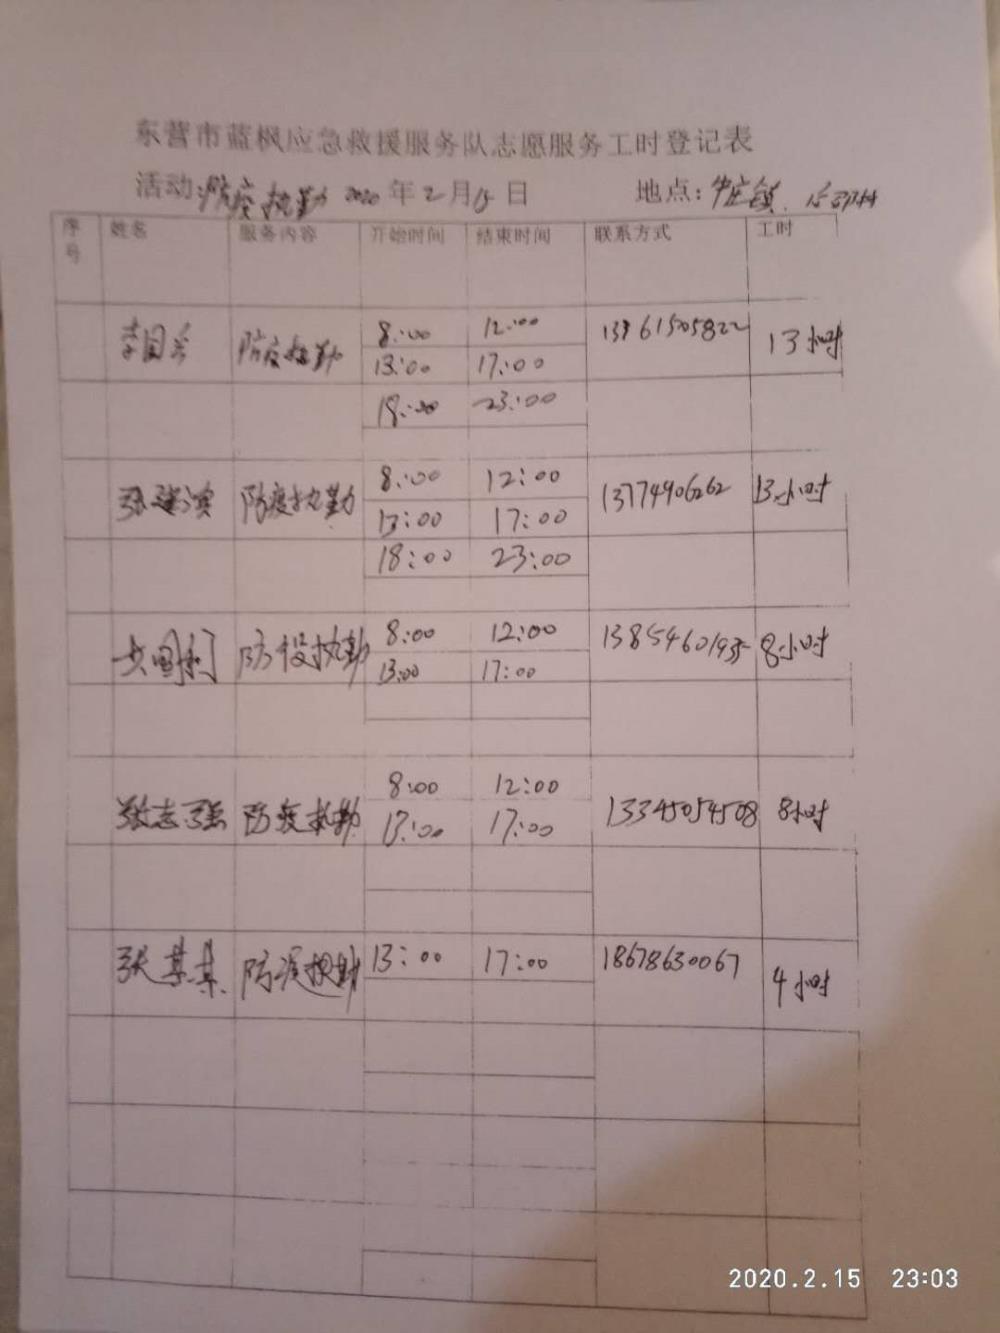 东营市蓝枫应急救援服务队志愿服务工时登记表
活动:防疫执勤 2020年2月15日 地点:牛庄镇.
序号 姓名 服务内容 开始时间 结束时间 联系方式 工时
防疫执勤 8:00 12:00 13小时
13:00 17:00
18:00 23:00
防疫执勤 8:00 12:00 13774906262 13小时
13:00 17:00
18:00 23:00
防役执勤 8:00 12:00 8小时
13:00 17:00
张志强 防疫执勤 8:00 12:00 13345054508 8小时
13:00 17:00
张某某 13:00 17:00 18678630067 4小时
2020.2.15 23:03